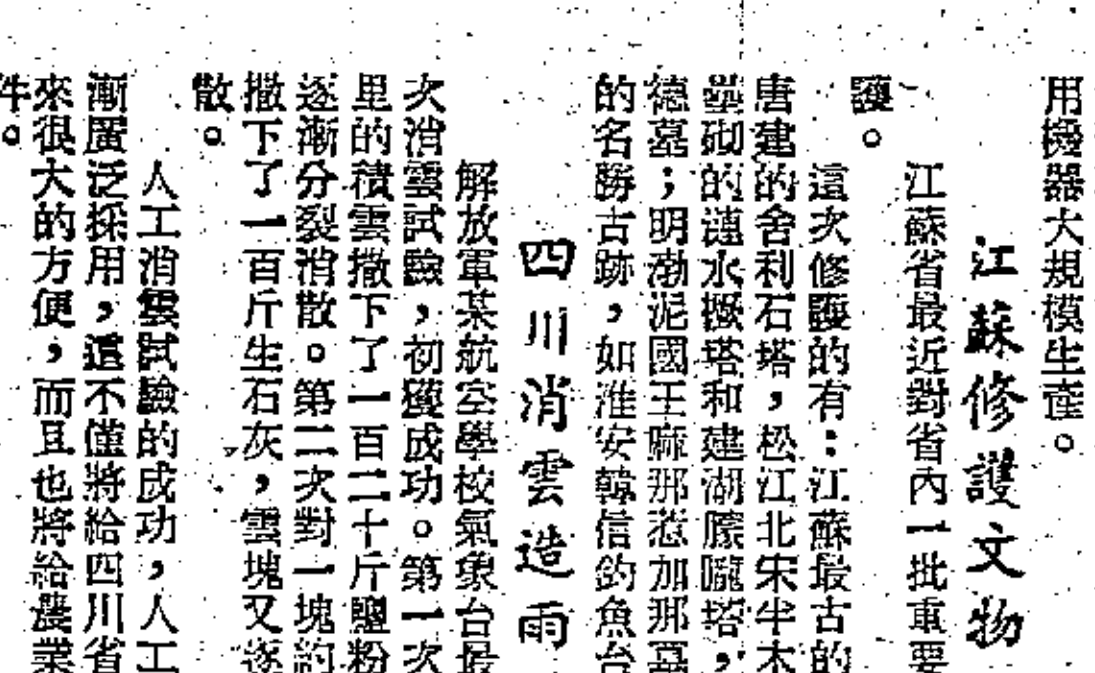 用機器大規模生產。
江蘇修護文物
江蘇省最近對省內一批重要
護。
這次修護的有：江蘇最古的
唐建的舍利石塔，松江北宋半木
壘砌的漣水撅塔和建湖朦朧塔，
德墓；明渤泥國王麻那惹加那墓
的名勝古跡，如淮安韓信釣魚台
四川消雲造雨
解放軍某航空學校氣象台最
次消雲試驗，初獲成功。第一次
里的積雲撒下了一百二十斤鹽粉
逐漸分裂消散。第二次對一塊約
撒下了一百斤生石灰，雲塊又逐
散。
人工消雲試驗的成功，人工
漸廣泛採用，這不僅將給四川省
來很大的方便，而且也將給農業
件。